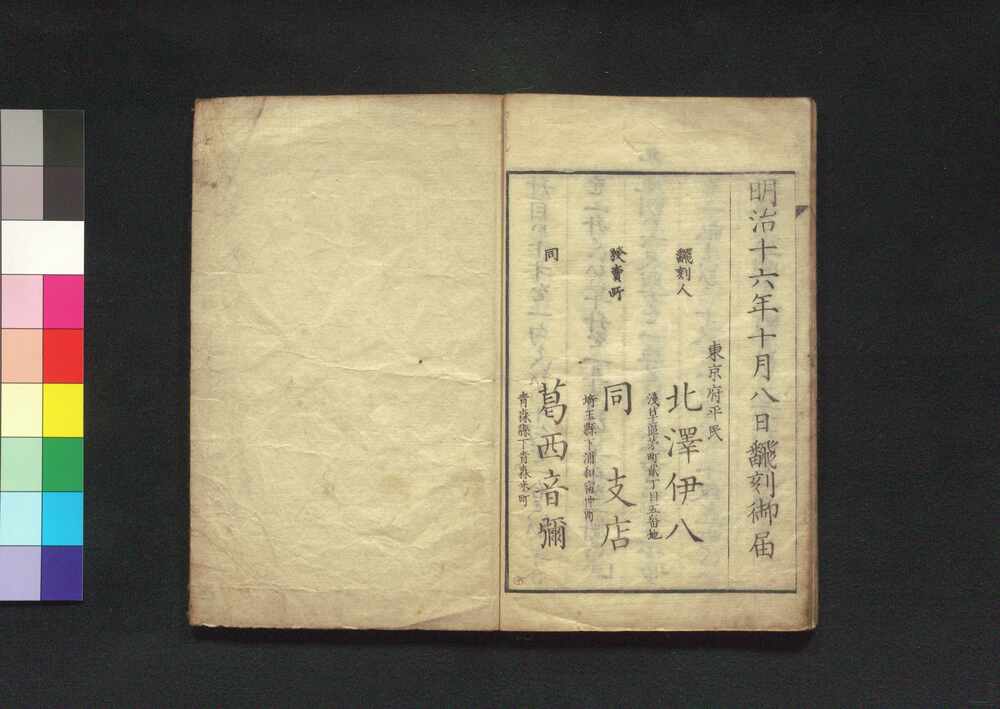 明治十六年十月八日飜刻御届
東京府平民
飜刻人
北澤伊八
淺草區茅町貳丁目五番地
發賣所
同支店
埼玉縣下浦和宿仲町
同
葛西音彌
青森縣下青森米町